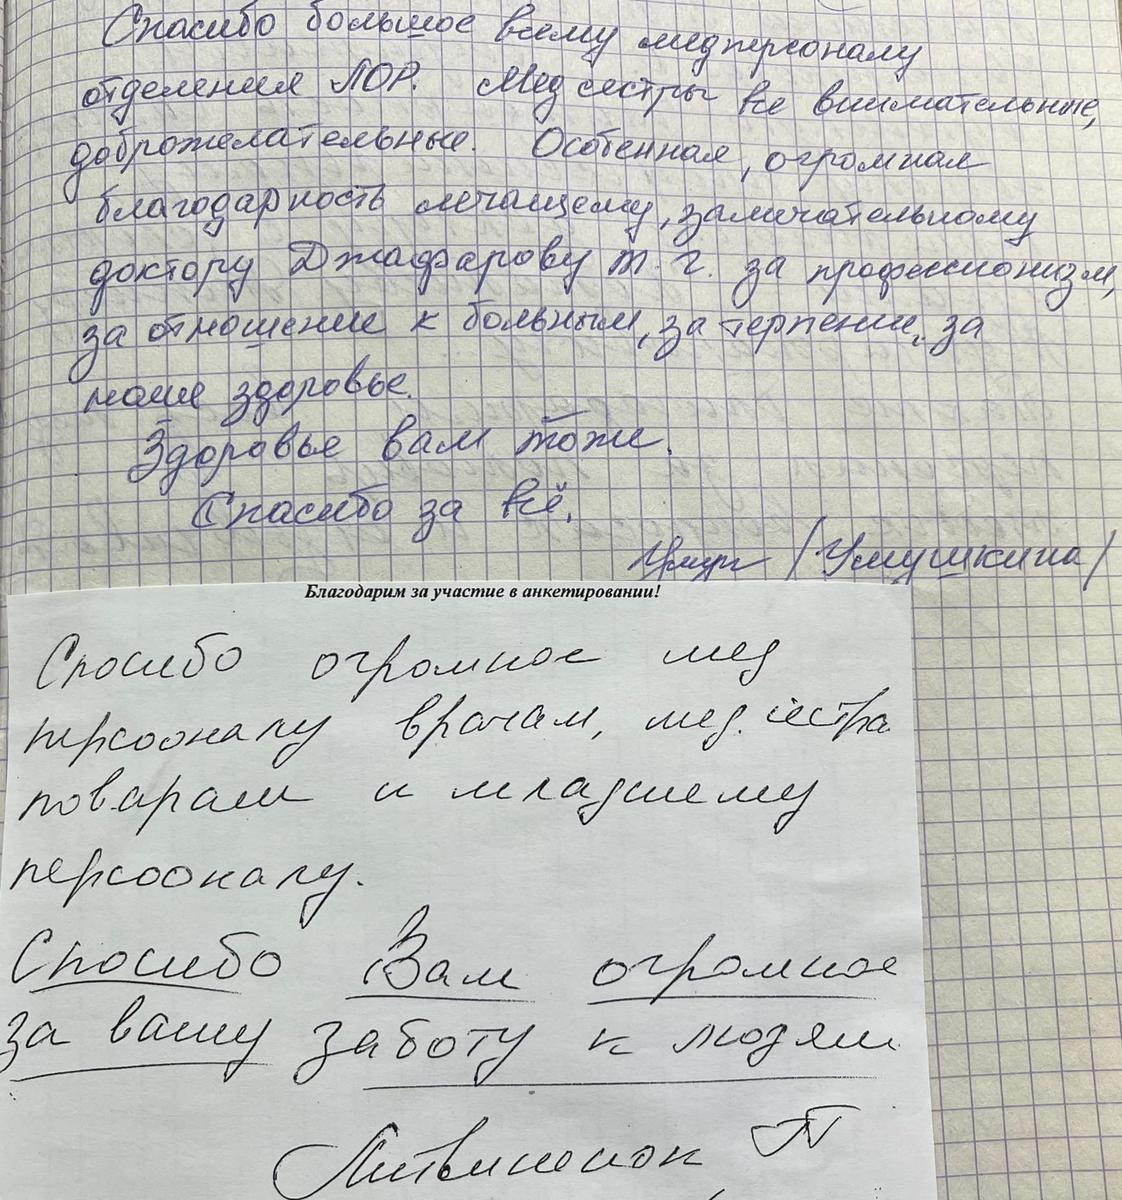 Спасибо большое всему медперсоналу
отделения ЛОР. Медсестры все внимательные,
доброжелательные. Особенная, огромная
благодарность лечащему, замечательному
доктору Джафарову Т. Г. за професионизм,
за отношение к больным, за терпение, за
наше здоровье.
Здоровье вам тоже.
Спасибо за всё.
/Умушкина/
Благодарим за участие в анкетировании!
Спосибо огромное мед
персооналу врачам, мед. сестра
поварам и младшему
персооналу.
Спосибо Вам огромное
за вашу заботу к людям
Литвиненок П